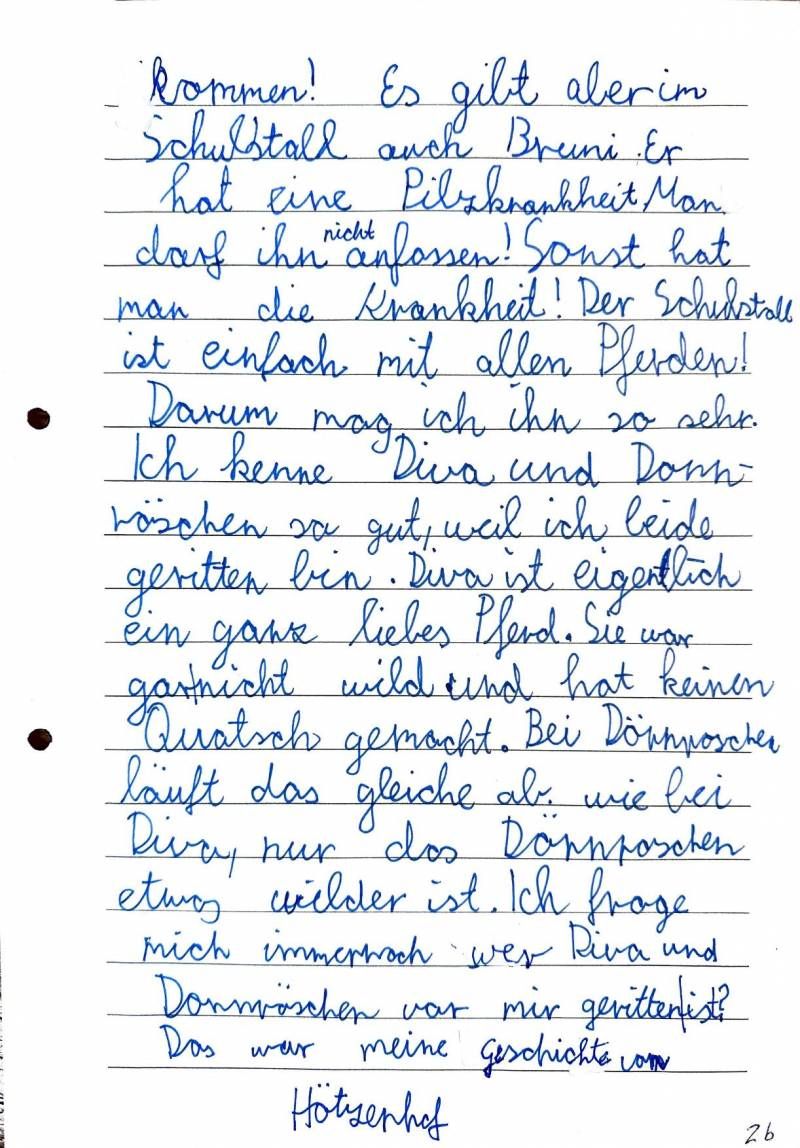 kommen! Es gibt aber im
Schulstall auch Bruni. Er
hat eine Pilzkrankheit, Man
darf ihn nicht anfassen! Sonst hat
man die Krankheit! Der Schulstall
ist einfach mit allen Pferden!
Darum mag ich ihn so sehr.
Ich kenne Diva und Dorn-
röschen so gut, weil ich beide
geritten bin. Diva ist eigentlich
ein ganz liebes Pferd. Sie war
gar nicht wild und hat keinen
Quatsch gemacht. Bei Dörnroschen
läuft das gleiche ab. wie bei
Diva, nur das Dörnroschen
etwas wilder ist. Ich frage
mich immernoch wer Diva und
Dornröschen vor mir geritten ist?
Das war meine Geschichte vom
Hötzenhof
2b